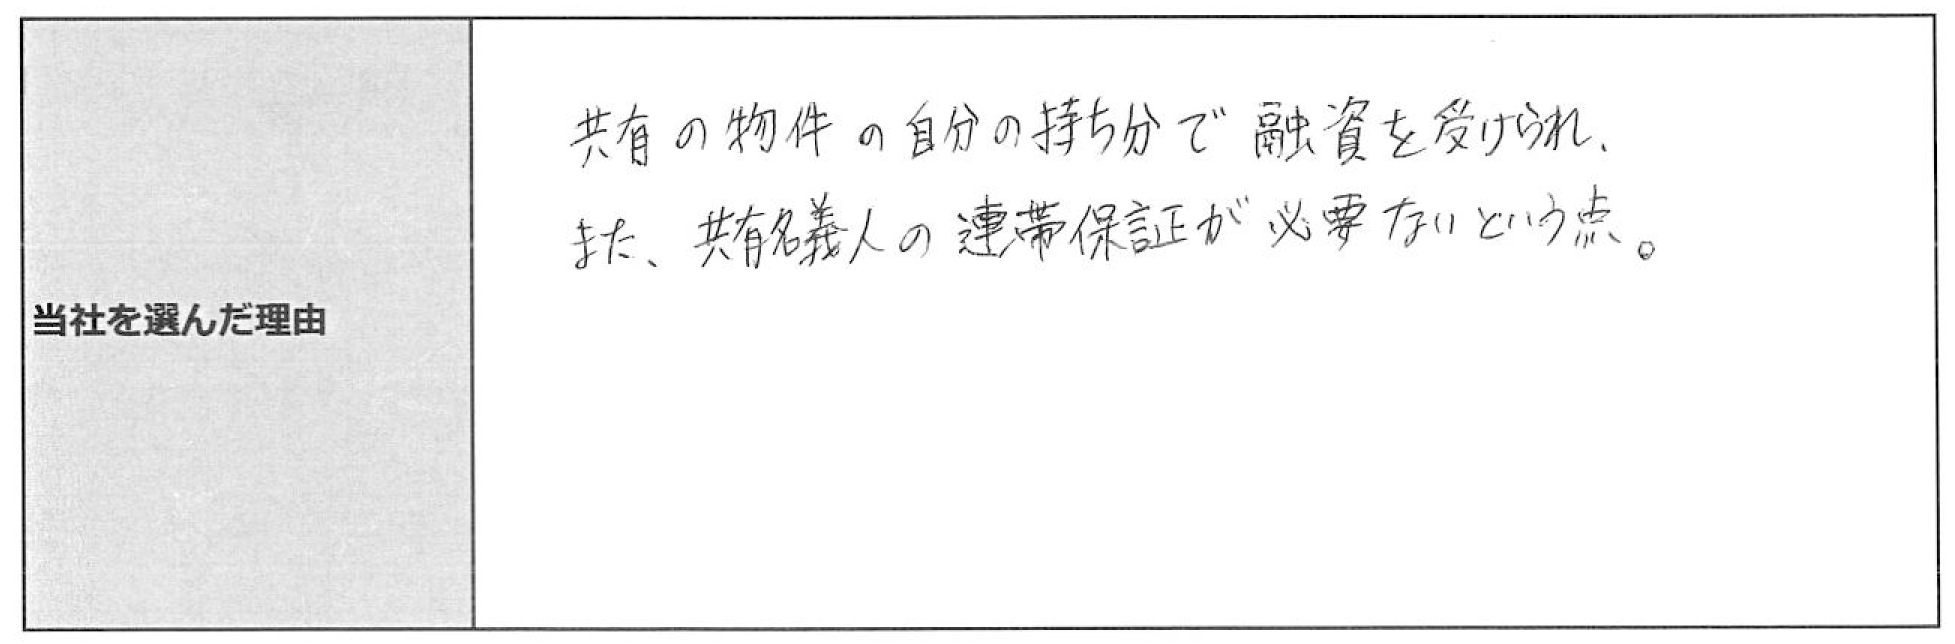 当社を選んだ理由
共有の物件の自分の持ち分で融資を受けられ、
また、共有名義人の連帯保証が必要ないという点。